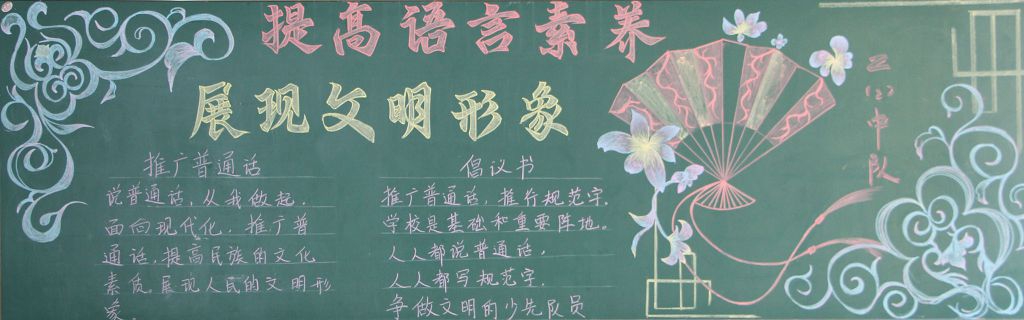 提高语言素养
展现文明形象
推广普通话
说普通话,从我做起.
面向现代化,推广普
通话,提高民族的文化
素质,展现人民的文明形
象.
倡议书
推广普通话,推行规范字.
学校是基础和重要阵地。
人人都说普通话,
人人都写规范字.
争做文明的少先队员
中队